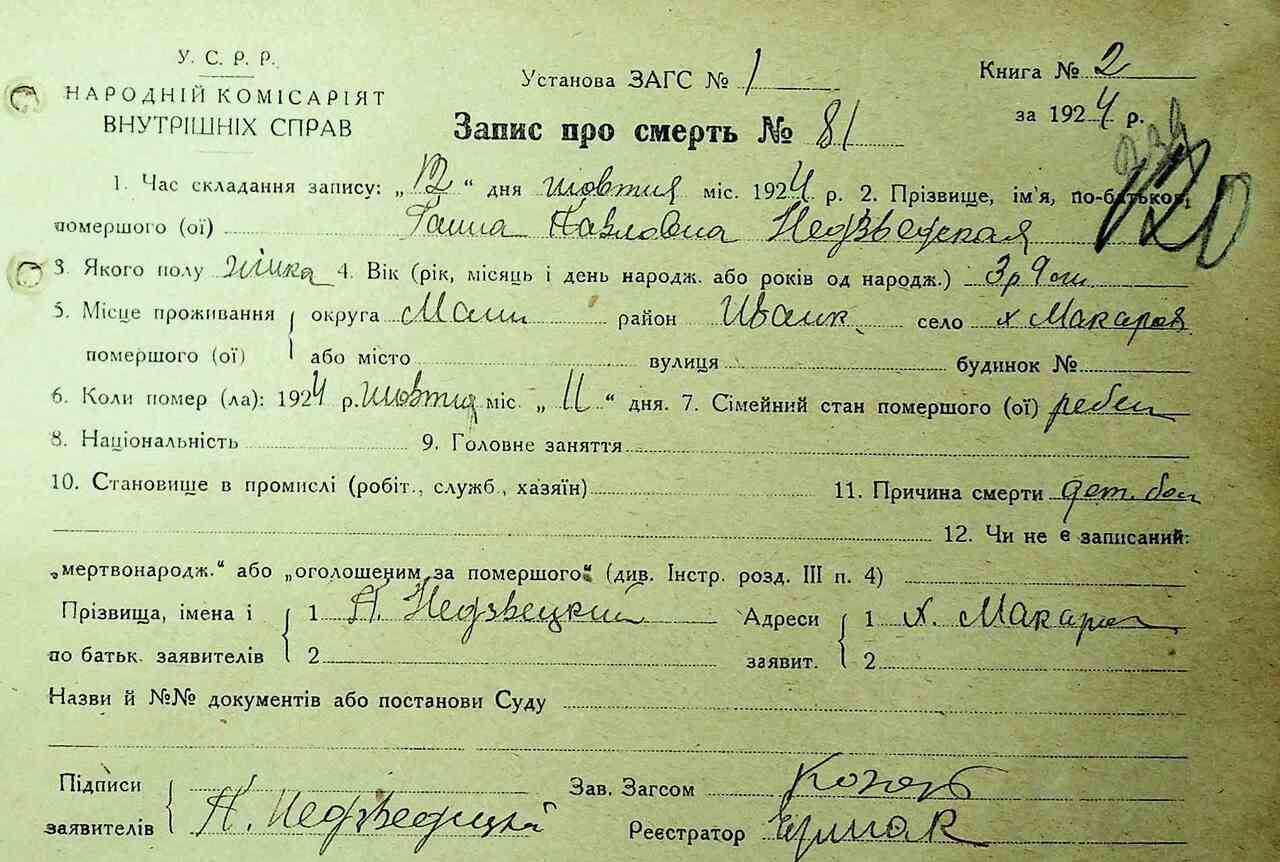 У. С. Р. Р.
НАРОДНІЙ КОМІСАРІЯТ
ВНУТРІШНІХ СПРАВ
Установа ЗАГС № 1
Книга № 2
за 1924 р.
Запис про смерть № 81
120
1. Час складання запису: „12" дня жовтня міс. 1924 р. 2. Прізвище, ім'я, по-батьков,
помершого (ої) Ганна Павловна Недзвецкая
3. Якого полу жінка 4. Вік (рік, місяць і день народж. або років од народж.) 3р 9
5. Місце проживання округа район Иванк. село х Макаров
помершого (ої) або місто вулиця будинок №
6. Коли помер (ла): 1924 р. жовтня міс. „11" дня. 7. Сімейний стан помершого (ої) ребен
8. Національність 9. Головне заняття
10. Становище в промислі (робіт., служб., хазяїн) 11. Причина смерти дет. бол
12. Чи не є записаний:
„мертвонародж." або „оголошеним за помершого" (див. Інстр. розд. III п. 4)
Прізвища, імена і 1 П. Недзвецкий Адреси 1 х. Макаров
по батьк. заявителів 2 заявит. 2
Назви й №№ документів або постанови Суду
Підписи Зав. Загсом
заявителів П. Недзведицкий Реєстратор Ермак